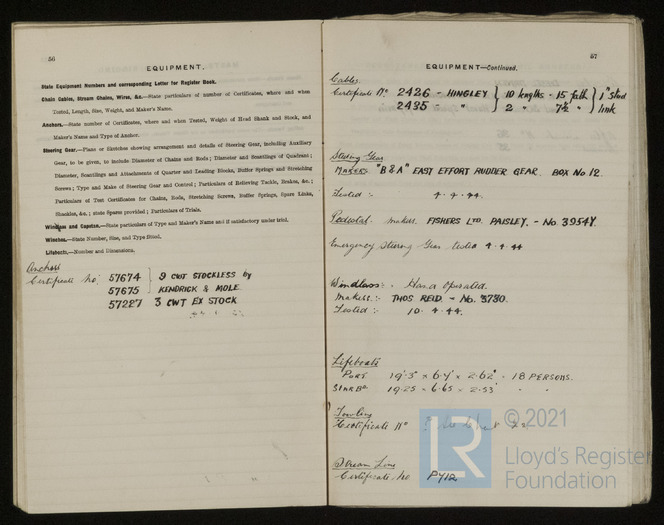 56
EQUIPMENT.
State Equipment Numbers and corresponding Letter for Register Book.
Chain Cables, Stream Chains, Wires, &c.—State particulars of number of Certificates, where and when
Tested, Length, Size, Weight, and Maker's Name.
Anchors.—State number of Certificates, where and when Tested, Weight of Head Shank and Stock, and
Maker's Name and Type of Anchor.
Steering Gear.—Plans or Sketches showing arrangement and details of Steering Gear, including Auxiliary
Gear, to be given, to include Diameter of Chains and Rods; Diameter and Scantlings of Quadrant;
Diameter, Scantlings and Attachments of Quarter and Leading Blocks, Buffer Springs and Stretching
Screws; Type and Make of Steering Gear and Control; Particulars of Relieving Tackle, Brakes, &c.;
Particulars of Test Certificates for Chains, Rods, Stretching Screws, Buffer Springs, Spare Links,
Shackles, &c.; state Spares provided; Particulars of Trials.
Windlass and Capstan.—State particulars of Type and Maker's Name and if satisfactory under trial.
Winches.—State Number, Size, and Type fitted.
Lifeboats.—Number and Dimensions.
Anchors
Certificate No: 57674 } 9 CWT STOCKLESS by
57675 } KENDRICK & MOLE.
57227 3 CWT EX STOCK
57
EQUIPMENT—Continued.
Cables.
Certificate No 2426 - HINGLEY } 10 lengths - 15 fath } 1" Stud
2435 - " } 2 " 7½ " } link
Steering Gear
MAKERS "B & A" EAST EFFORT RUDDER GEAR. BOX No 12.
Tested :- 4.4.44.
Pedestal. makers FISHERS LTD. PAISLEY. - No. 3954Y.
Emergency Steering Gear tested 4.4.44
Windlass :- Hand Operated.
Makers :- THOS REID. - No. 3780.
Tested :- 10.4.44.
Lifeboats
PORT 19.3 × 6.7 × 2.62 - 18 PERSONS.
STARBD 19.25 × 6.65 × 2.53 " "
Towline
Certificate No
Stream Line
Certificate No P412
LR
© 2021
Lloyd's Register
Foundation